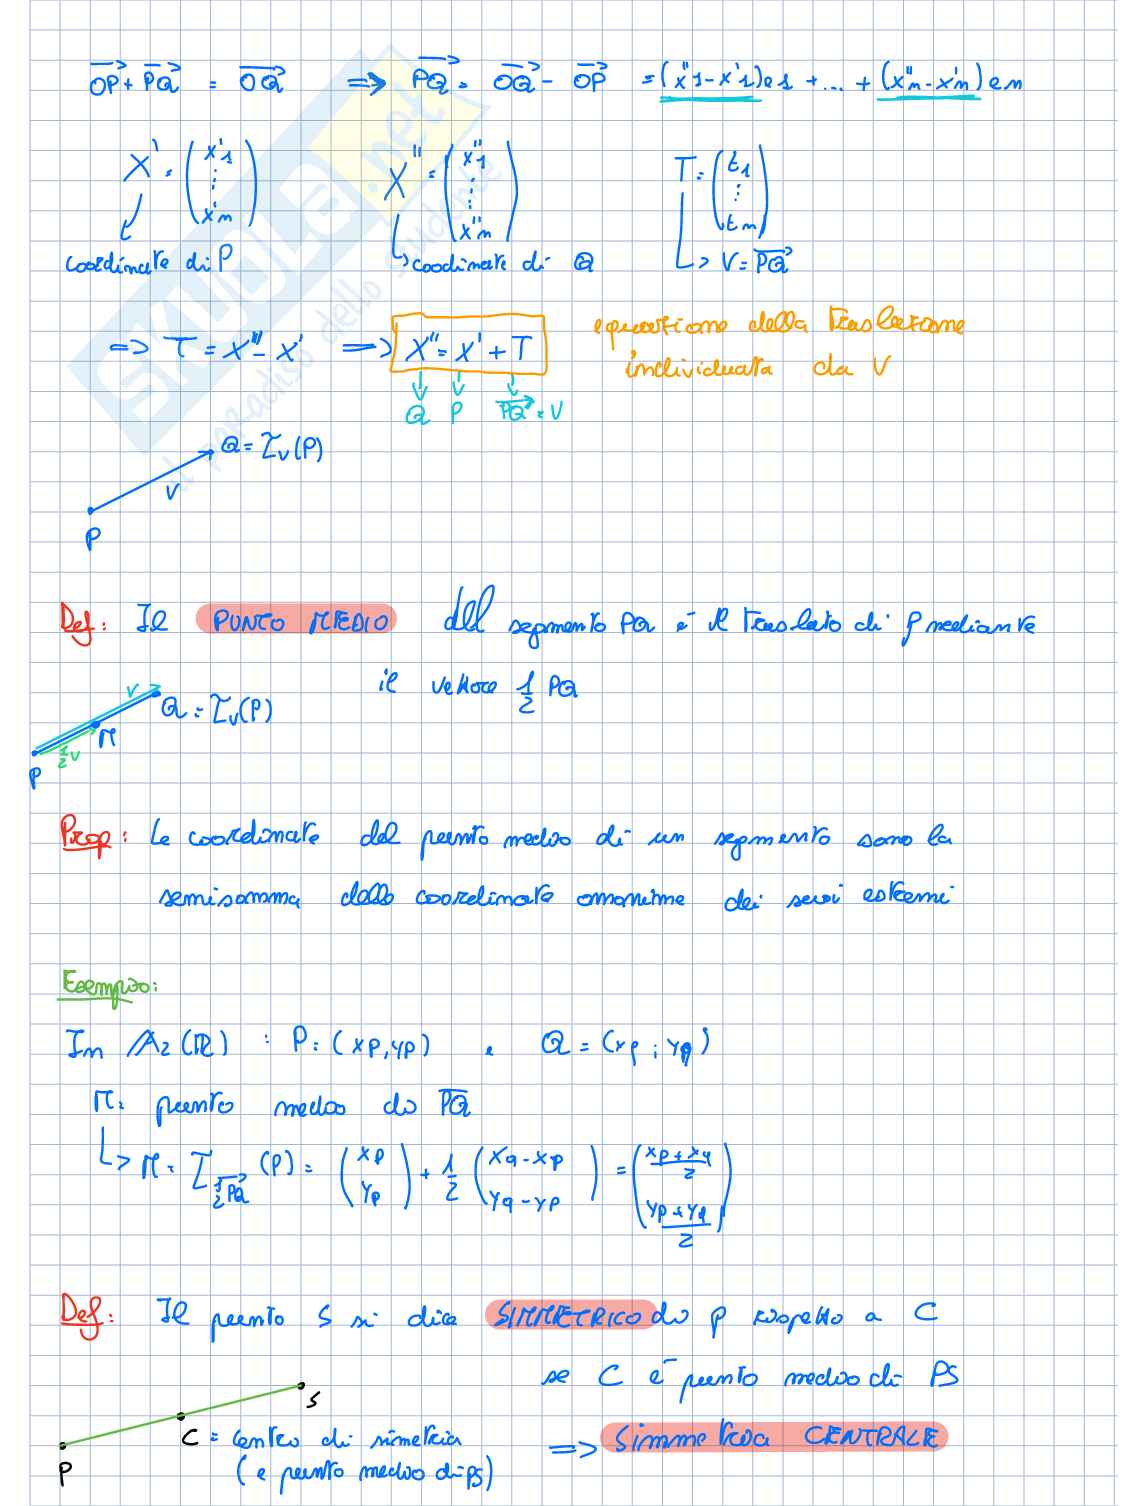 OP + PQ = OQ ⇒ PQ = OQ - OP = (x''1 - x'1)e1 + ... + (x''n - x'n)en
X' = (x'1 ⋮ x'n) X'' = (x''1 ⋮ x''n) T = (t1 ⋮ tn)
coordinate di P coodinate di Q V = PQ
=> T = X'' - X' => X'' = X' + T equazione della traslazione
individuata da V
Q P PQ = V
Q = τv(P)
V
P
Def: Il PUNTO MEDIO del segmento PQ è il traslato di P mediante
il vettore 1/2 PQ
V Q = τv(P)
M
1/2 V
P
Prop: Le coordinate del punto medio di un segmento sono la
semisomma delle coordinate omonime dei suoi estremi
Esempio:
In A2(R) : P = (xP, yP) e Q = (xq ; yq)
M = punto medio di PQ
M = τ1/2PQ (P) = (xP yP) + 1/2 (xQ - xP yQ - yP) = ((xP + xq)/2 (yP + yq)/2)
Def: Il punto S si dice SIMMETRICO di P rispetto a C
se C è punto medio di PS
S
C = centro di simetria => Simmetria CENTRALE
P (e punto medio di PS)
SKUOLA.net
il paradiso dello studente